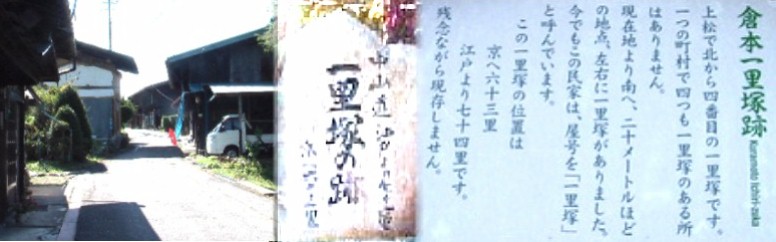 倉本一里塚跡
Kuramoto Ichiri-zuka
上松で北から四番目の一里塚です。
一つの町村で四つも一里塚のある所
はありません。
現在地より南へ、二十メートルほど
の地点、左右に一里塚がありました。
今でもこの民家は、屋号を「一里塚」
と呼んでいます。
この一里塚の位置は
京へ六十三里
江戸より七十四里です。
残念ながら現存しません。
中山道江戸より七十四里
一里塚の跡